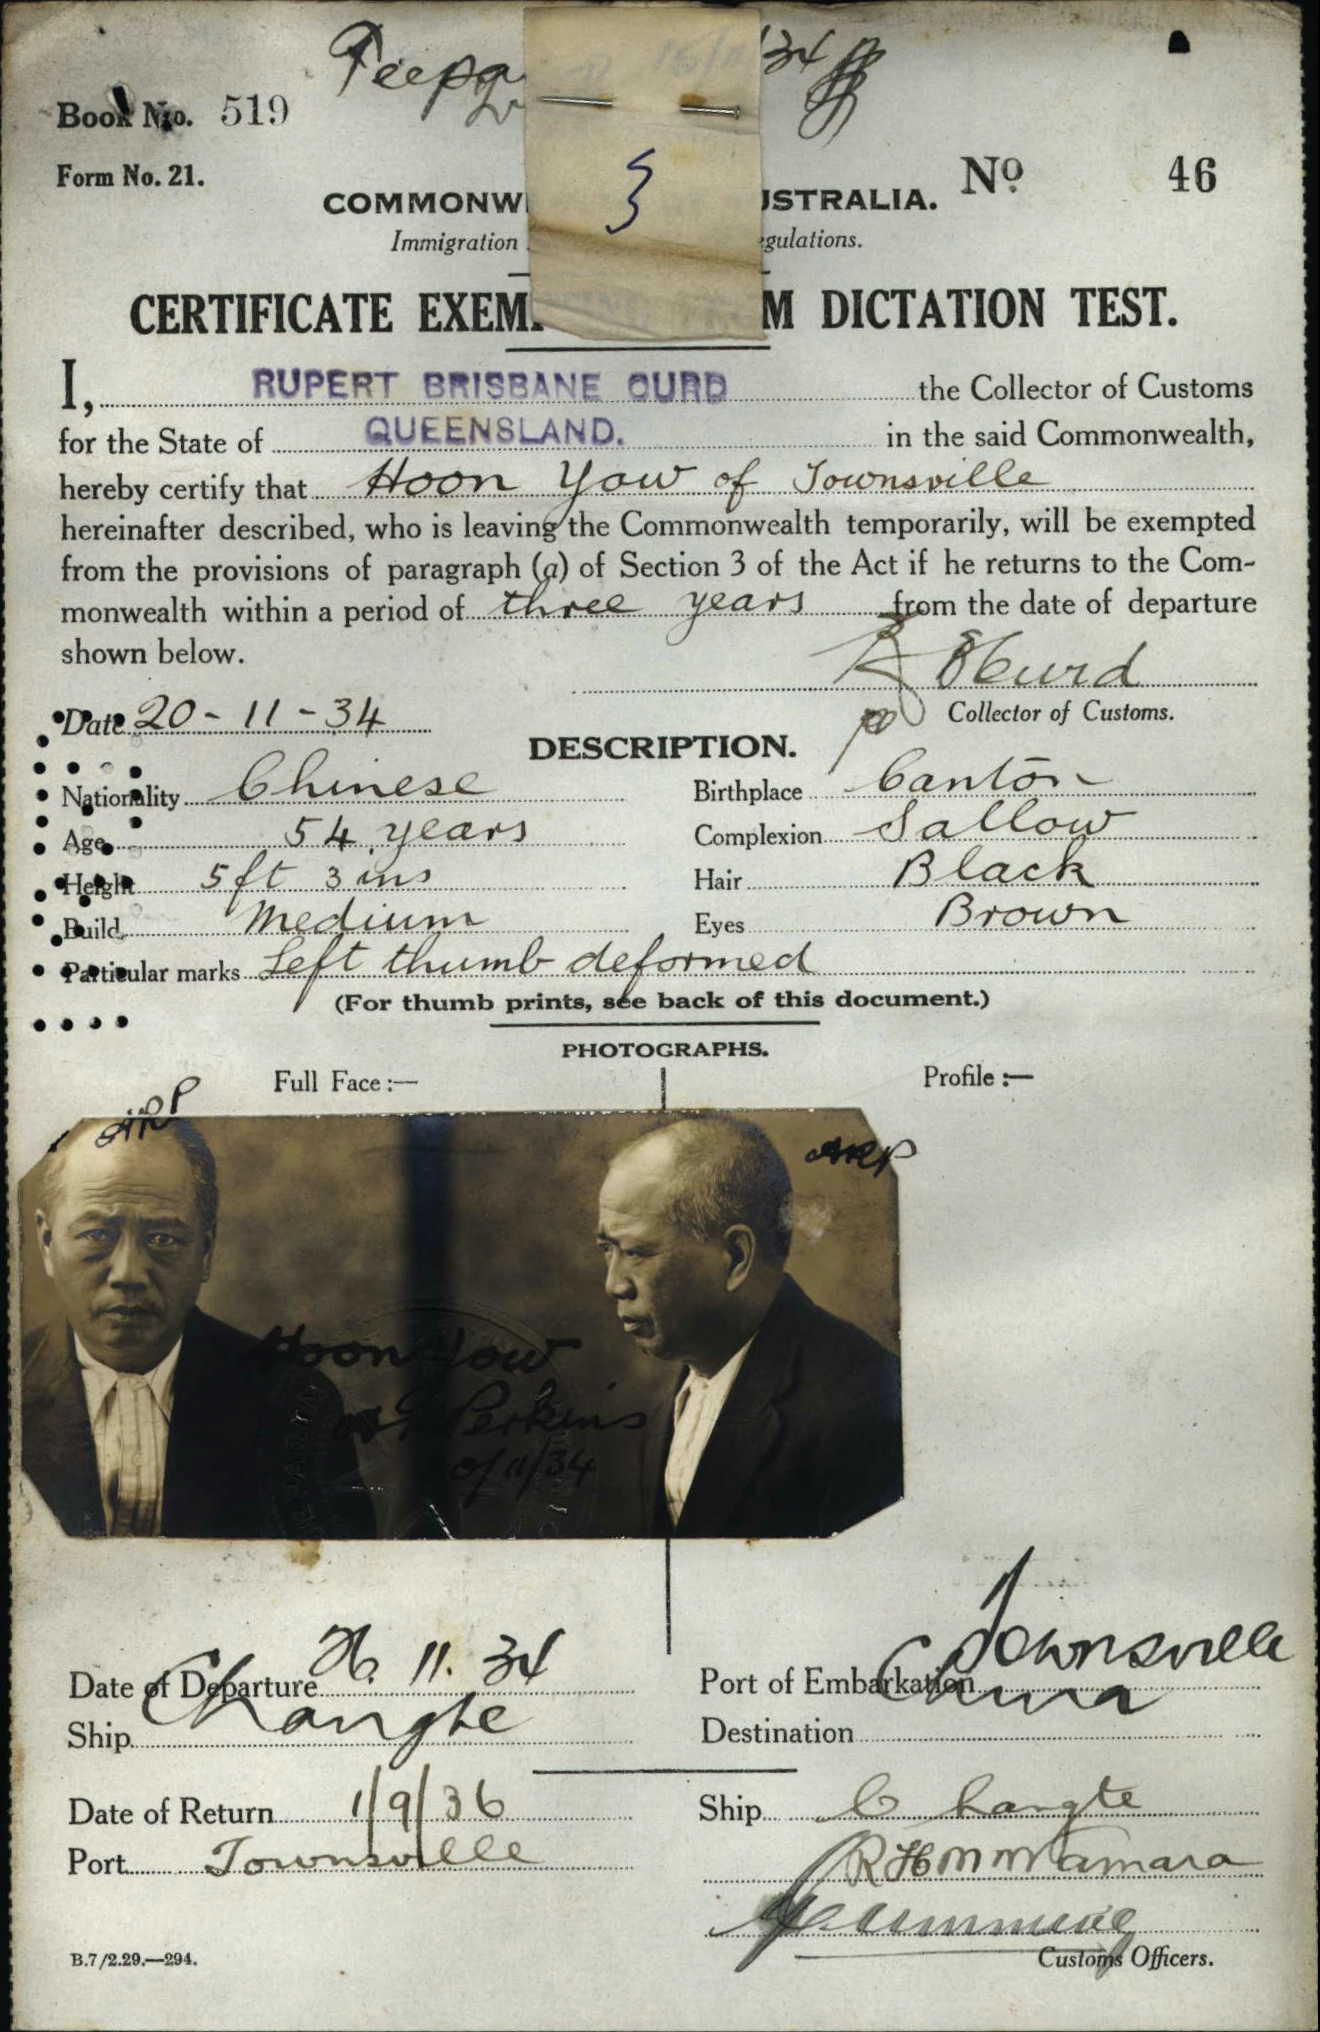 34
Book No. 519
3
Form No. 21.
No. 46
COMMONW USTRALIA.
Immigration egulations.
CERTIFICATE EXEM M DICTATION TEST.
I, RUPERT BRISBANE CURD the Collector of Customs
for the State of QUEENSLAND. in the said Commonwealth,
hereby certify that Hoon Yow of Townsville
hereinafter described, who is leaving the Commonwealth temporarily, will be exempted
from the provisions of paragraph (a) of Section 3 of the Act if he returns to the Com-
monwealth within a period of three years from the date of departure
shown below.
Date 20-11-34
Collector of Customs.
DESCRIPTION.
Nationality Chinese Birthplace Canton
Age 54 years Complexion Sallow
Height 5 ft 3 ins Hair Black
Build Medium Eyes Brown
Particular marks Left thumb deformed
(For thumb prints, see back of this document.)
PHOTOGRAPHS.
Full Face:— Profile:—
Hoon Yow
Perkins
11/34
Date of Departure 26. 11. 34 Port of Embarkation Townsville
Ship Changte Destination China
Date of Return 1/9/36 Ship Changte
Port Townsville
Customs Officers.
B.7/2.29.—294.